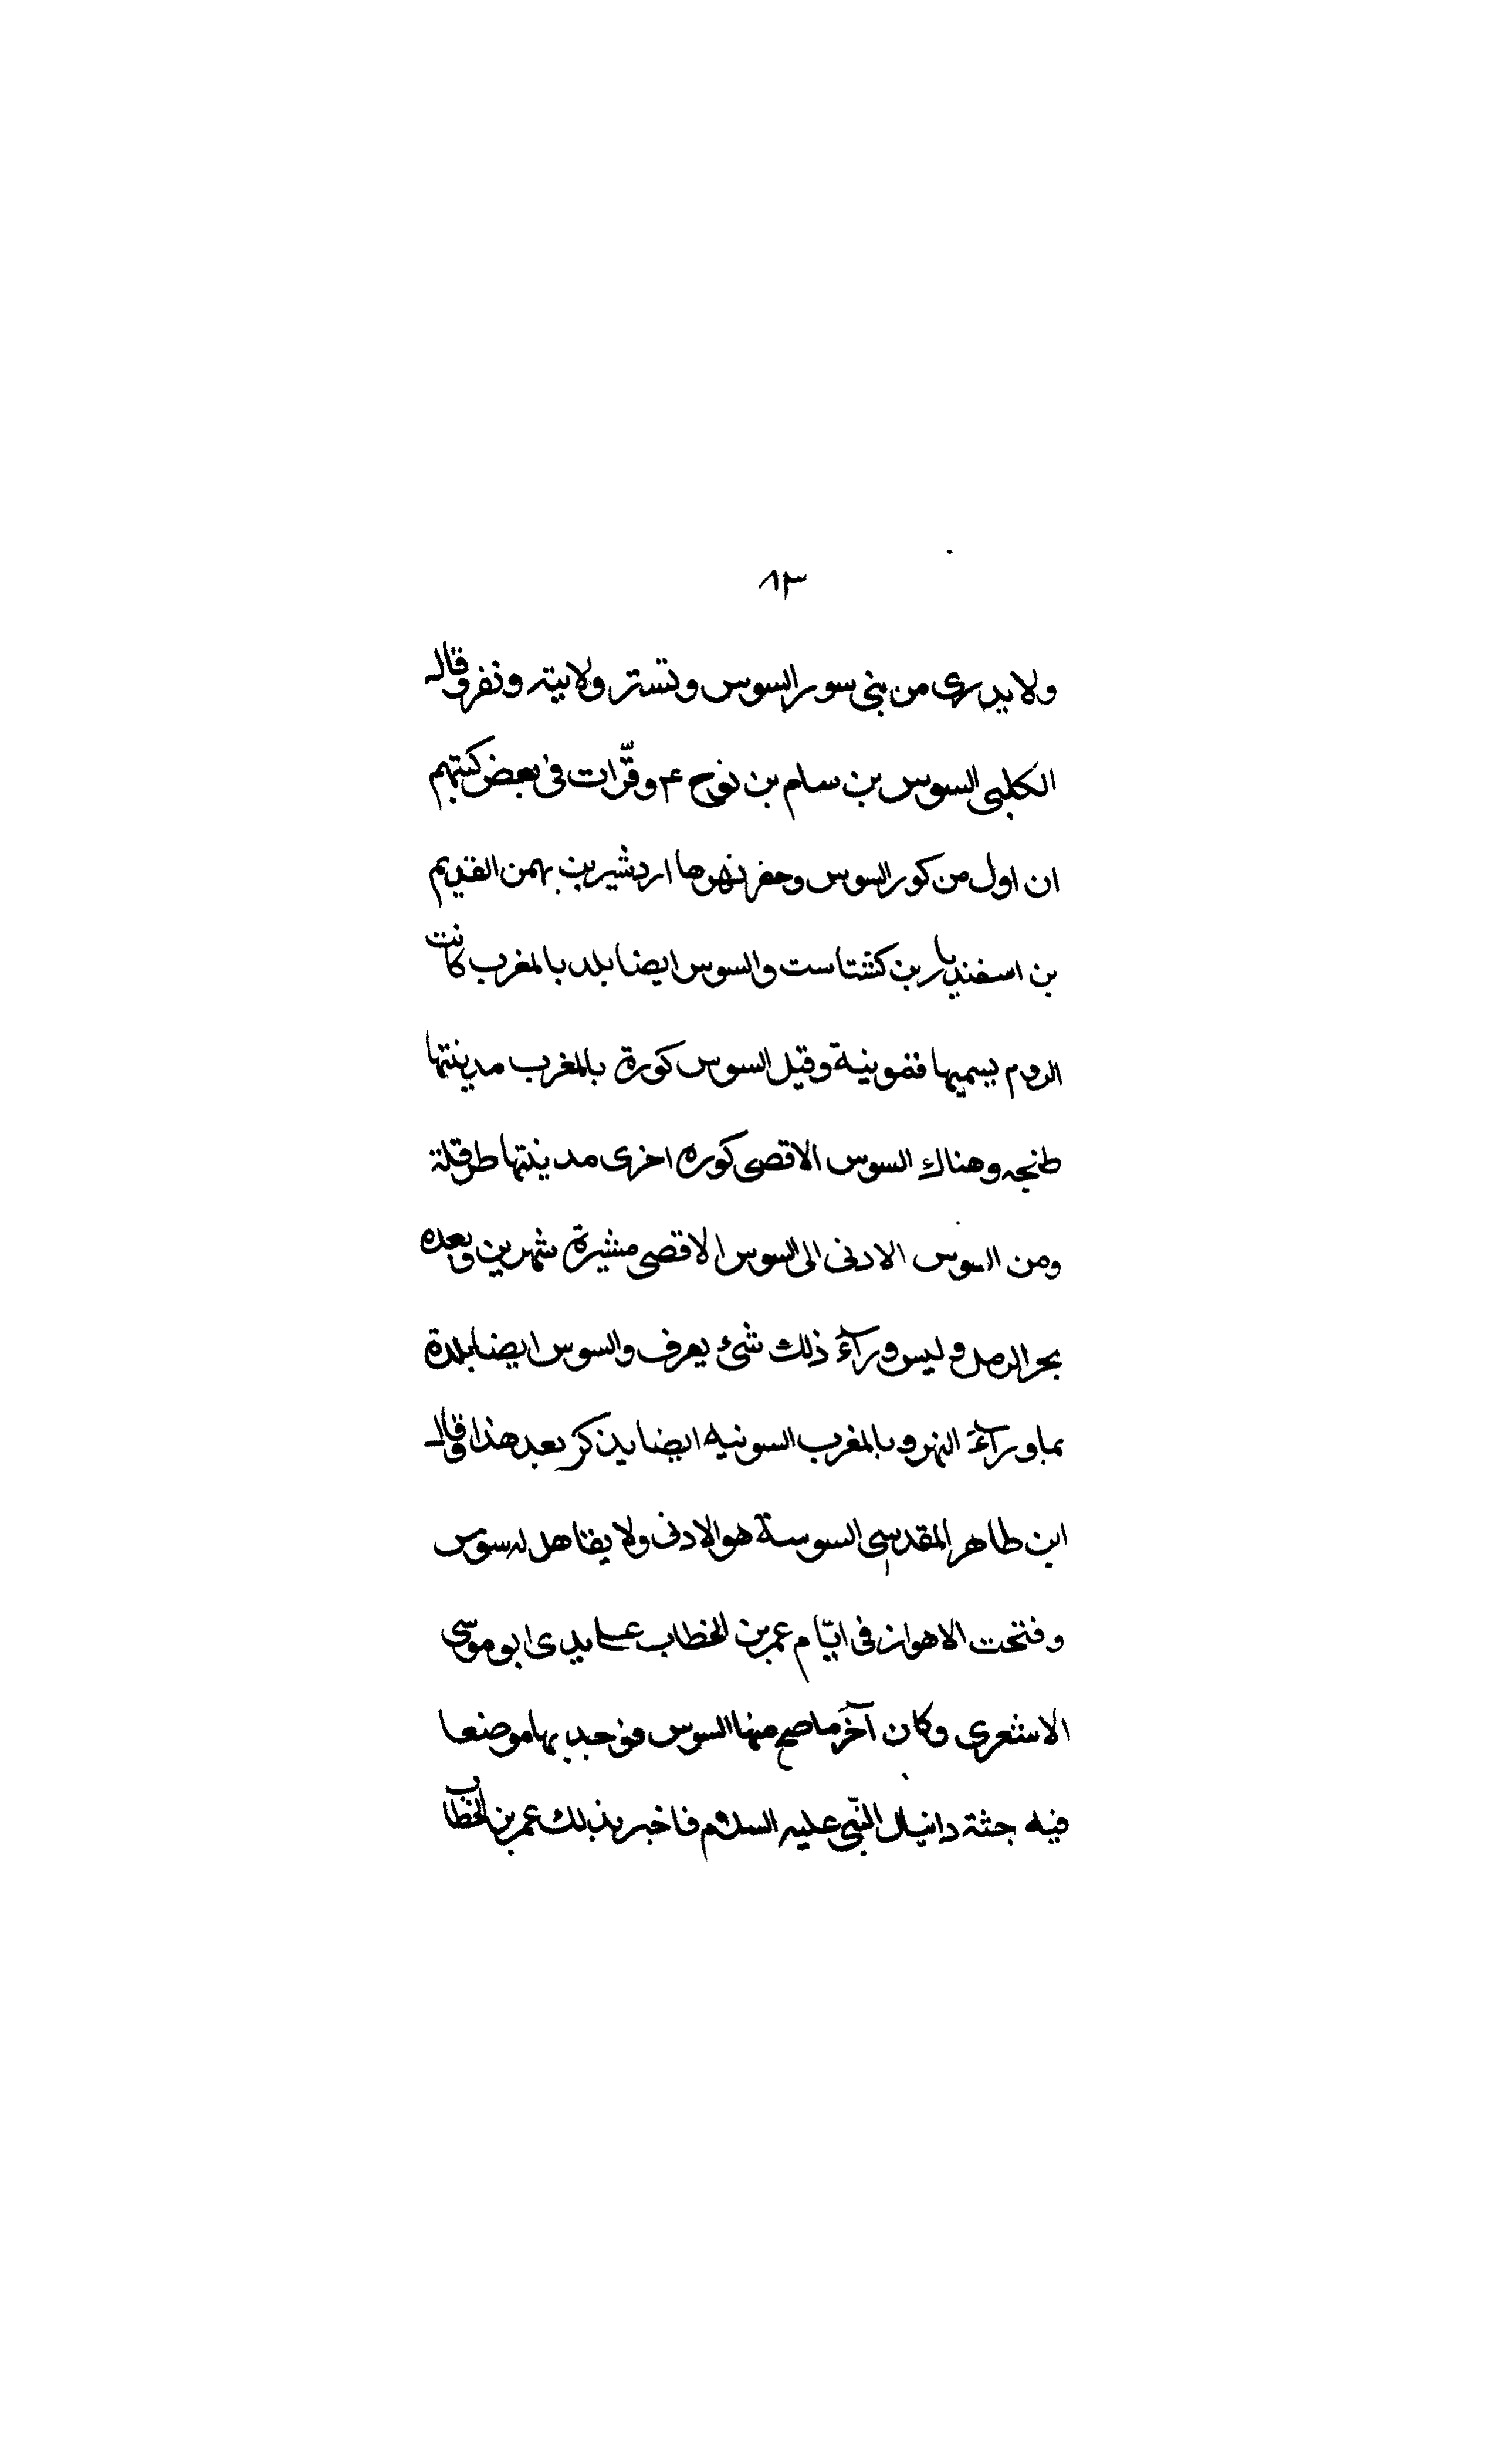 ٨٣
ولا يدرى من بنى سور السوس وتستر ولابيته ونفر وقال
الكلبى السوس بن سام بن نوح ع وقرّات فى بعض كتبهم
ان اول من كور السوس وحفر نهرها اردشير بن بهمن القديم
بن اسفنديار بن كشتاست والسوس ايضا بلد بالمغرب كانت
الروم يسميها فقوينية وقيل السوس كورة بالمغرب مدينتها
طنجه وهناك السوس الاقصى كوره اخرى مدينتها طرقلة
ومن السوس الادنى الى السوس الاقصى مشيرة شهرين وبعده
بحر الرمل وليس ورآء ذلك شئ يعرف والسوس ايضا بلدة
بماورآء النهر وبالمغرب السونيه ايضا يذكر بعد هذا وقال
ابن طاهر المقدسى السوسة هو الادنى ولا يقا هل له سوس
وفتحت الاهواز فى ايّام عمر بن الخطاب على يدى ابو موسى
الاشعرى وكان آخر ما صح منها السوس فوجد بها موضعا
فيه جثة دانيال النّبى عليه السلام فاخبر بذلك عمر بن الخطاب